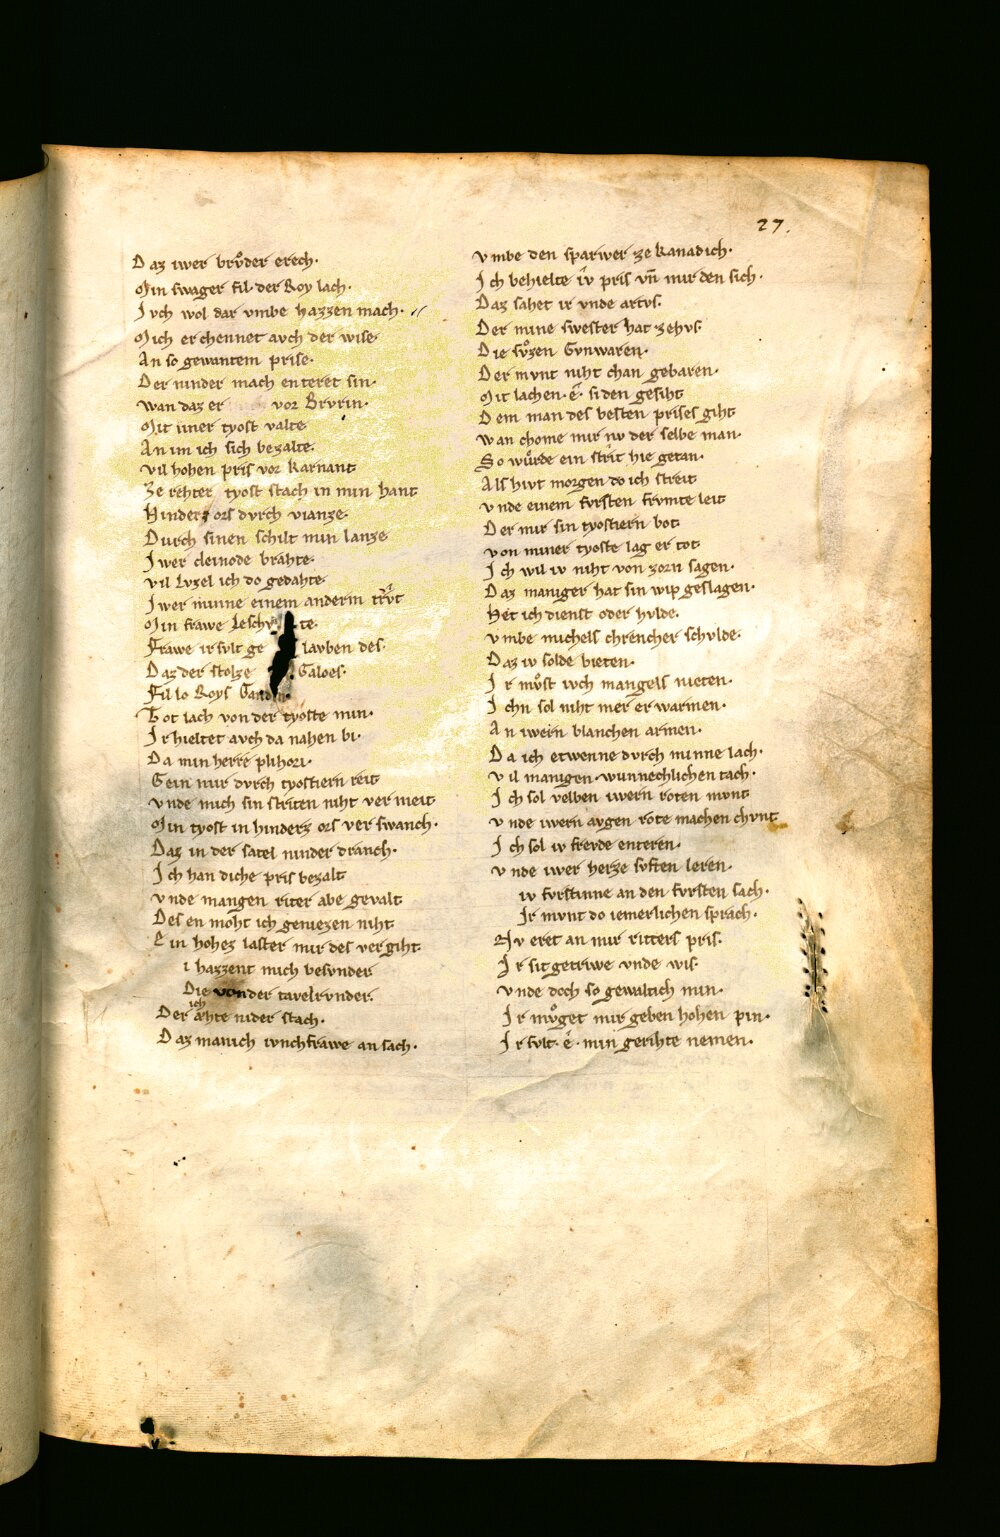 27.
Daz iwer brůder erech·
Min swager fil· der Roy lach·
Ivch wol dar vmbe hazzen mach·
Mich erchennet avch der wise
An so gewantem prise·
Der ninder mach enteret sin·
wan daz er vor Brvrin·
Mit siner tyost valte
An im ich sich bezalte·
vil hohen pris vor karnant
Ze rehter tyost stach in min hant
Hinderz ors dvrch vianze·
Durch sinen schilt min lanze
Iwer cleinode brahte·
vil lvzel ich do gedahte·
Iwer minne einem anderm trvt
Min frawe Jeschv te·
Frawe ir svlt ge lavben des·
Daz der stolze Galoes·
Fil lo Roys Gandin·
Tot lach von der tyoste min·
Ir hieltet avch da nahen bi·
Da min herre plihori·
Gein mir dvrch tyostiern reit
vnde mich sin striten niht vermeit
Min tyost in hinderz ors verswanch·
Daz in der satel ninder dranch·
Ich han diche pris bezalt
vnde mangen riter abe gevalt
Des en moht ich geniezen niht
Ein hohez laster mir des vergiht
i hazzent mich besvnder
Die von der tavelrvnder·
Der ich ahte nider stach·
Daz manich ivnchfrawe an sach·
vmbe den sparwer ze kanadich·
Ich behielte iv pris vn̄ mir den sich·
Daz sahet ir vnde artvs·
Der mine swester hat ze hvs·
Die sůzen Gvnwaren·
Der mvnt niht chan gebaren·
Mit lachen· ê· si den gesiht
Dem man des besten prises giht
wan chome mir nv der selbe man·
So wůrde ein strit hie getan·
Als hivt morgen do ich streit
vnde einem fvrsten frvmte leit
Der mir sin tyostiern bot·
von miner tyoste lag er tot·
Ich wil iv niht von zorn sagen·
Daz maniger hat sin wip geslagen·
Het ich dienst oder hvlde·
vmbe michels chrencher schvlde·
Daz iv solde bieten·
Ir můst ivch mangels nieten·
Ichn sol niht mer erwarmen·
An iwern blanchen armen·
Da ich etwenne dvrch minne lach·
vil manigen wunnechlichen tach·
Ich sol velben iwern roten mvnt
vnde iwern avgen rote machen chvnt
Ich sol iv frevde enteren·
vnde iwer herze svften leren·
iv fvrstinne an den fvrsten sach·
Ir mvnt do iemerlichen sprach·
Nv eret an mir ritters pris·
Ir sit getriwe vnde wis·
vnde doch so gewaltich min·
Ir můget mir geben hohen pin·
Ir svlt· ê· min gerihte nemen·